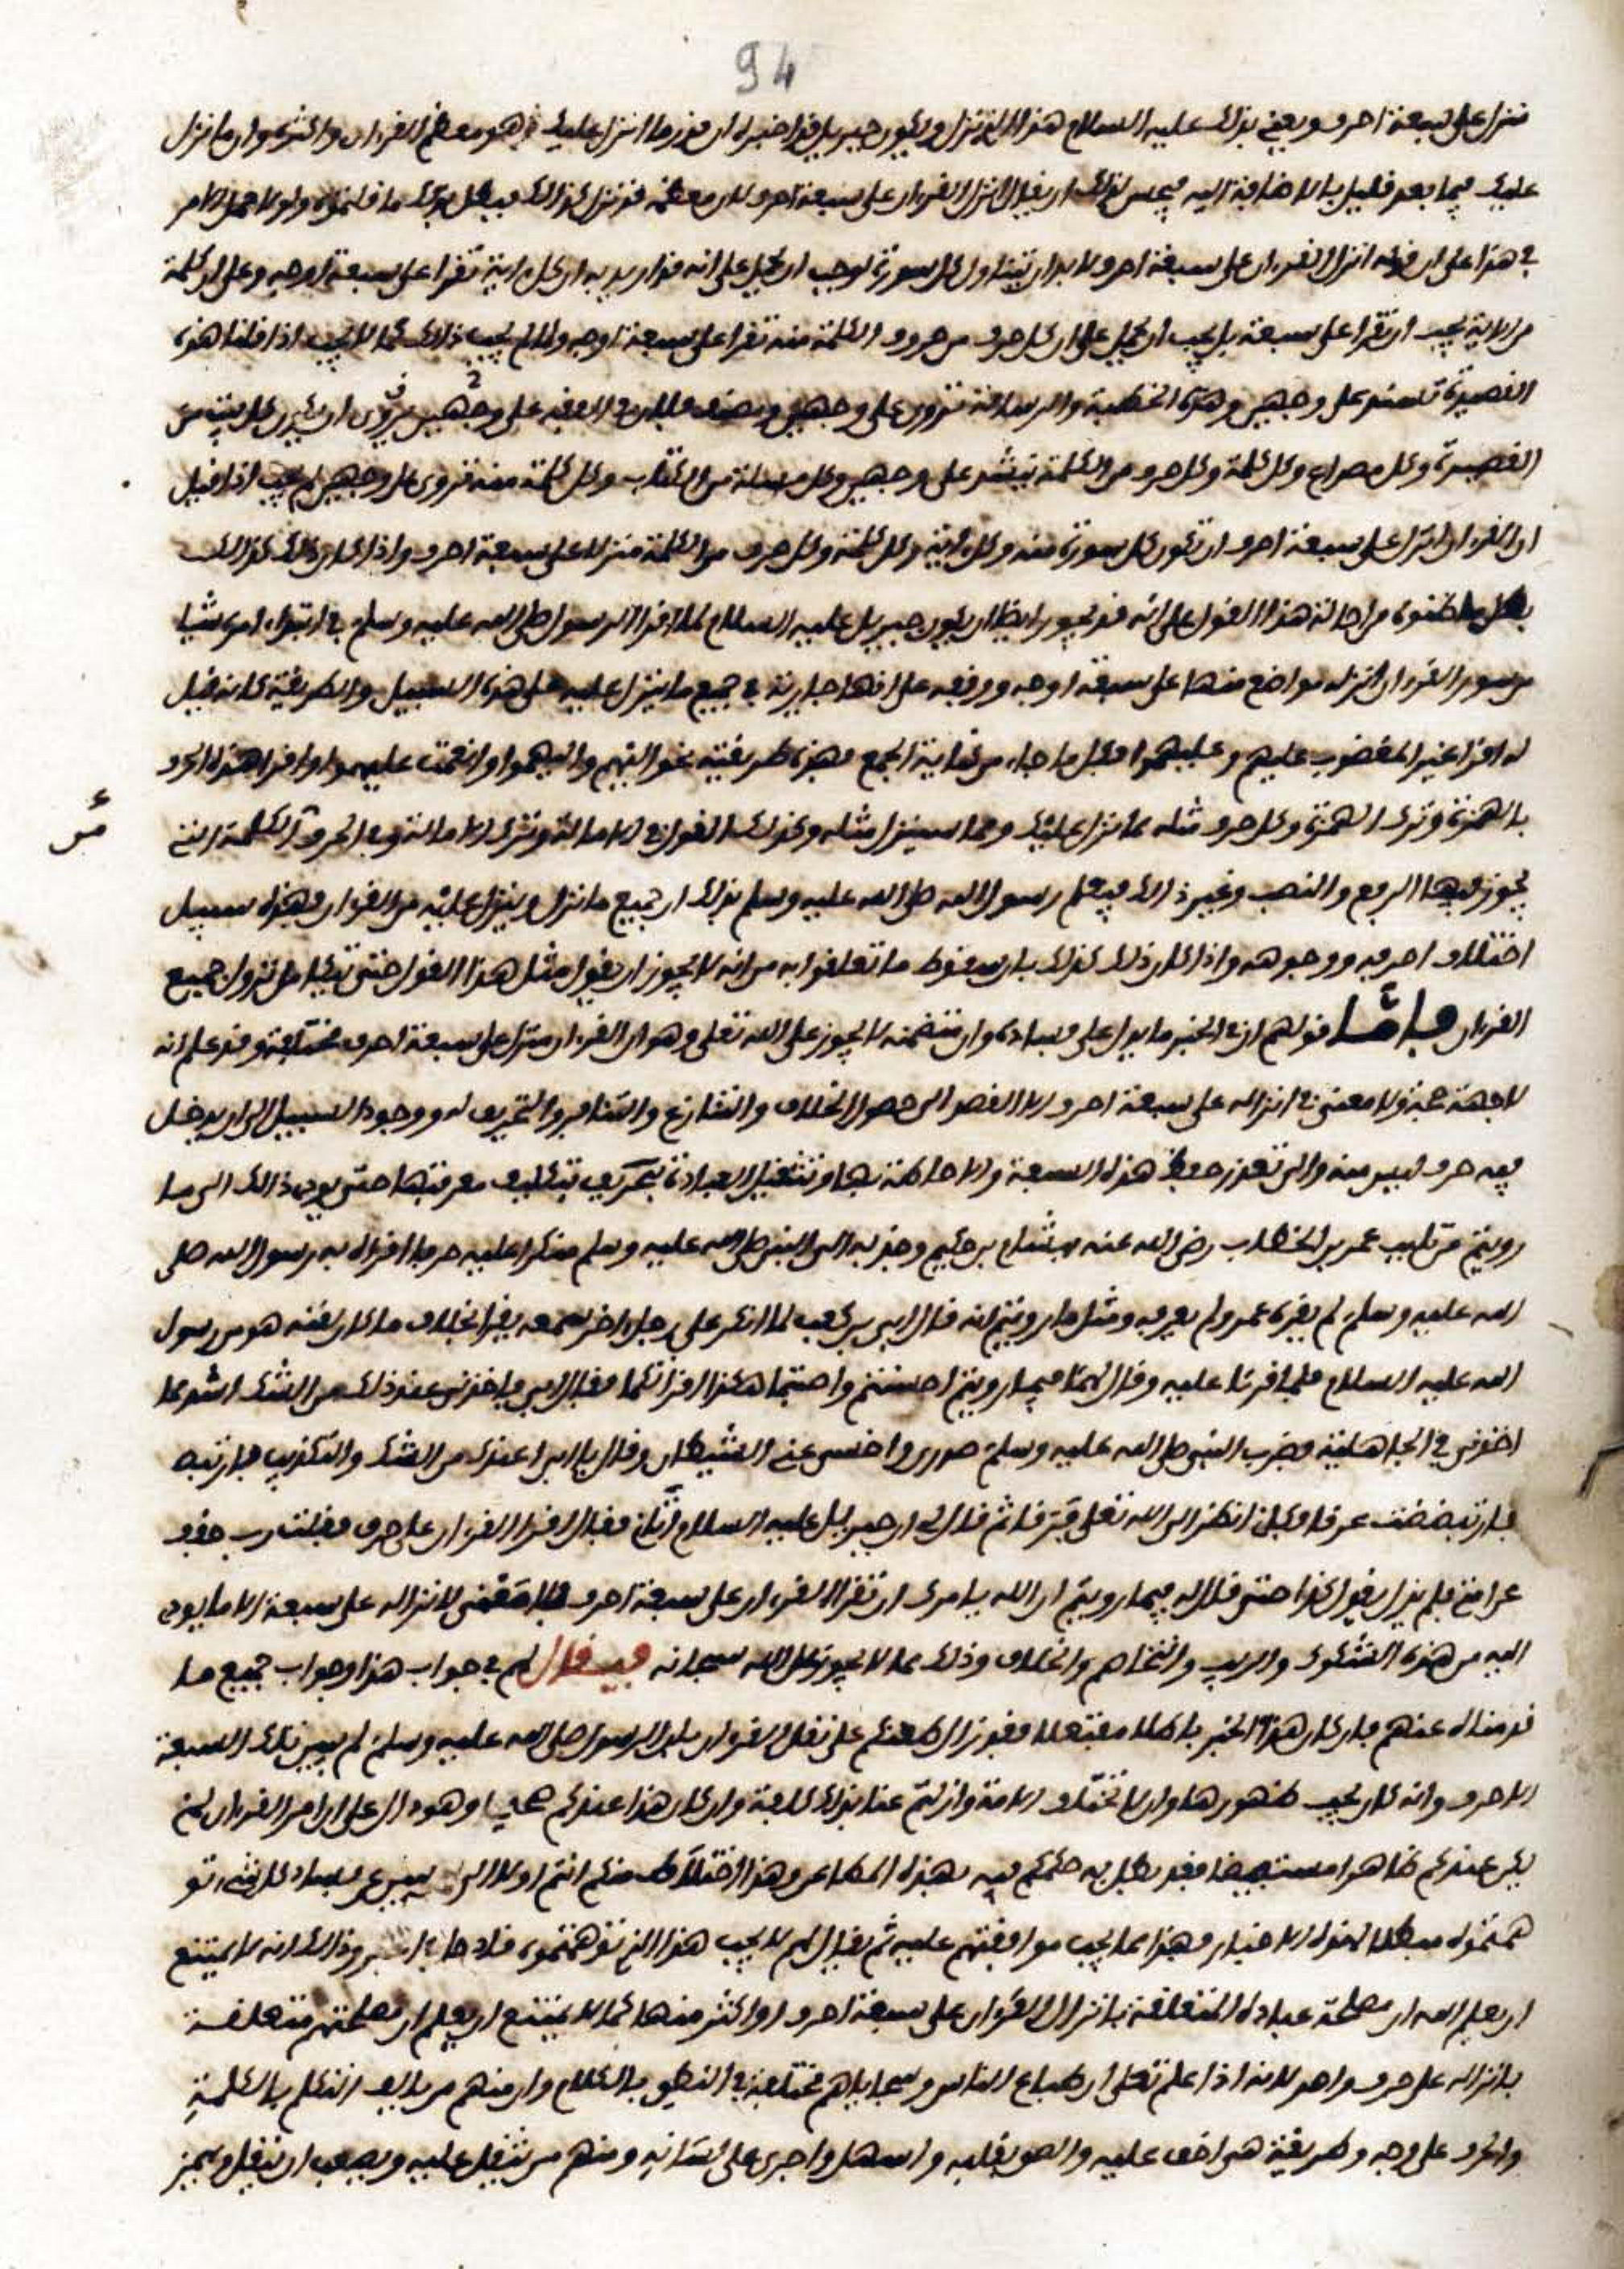 94
ننزل على سبعة احرف ويعني بذلك عليه السلام هذا الذي تنزل ويكون جبريل قد اخبره ان قدر ما انزل عليك هو معظم القرءان واكثره وان ما نزل
عليك فيما بعد قليل بالاضافة اليه فيحسن لذلك ان يقال انزل القرءان على سبعة احرف لان معظمه قد نزل كذالك فبطل بذلك ما قلتموه ولولا حمل الامر
في هذا على ان قوله انزل القرءان على سبعة احرف لا بد ان يتناول كل سورة لوجب ان يحمل على انه قد اريد به ان كل ءاية تقرا على سبعة اوجه وعلى ان كل كلمة
من الاية يجب ان تقرا على سبعة بل يجب ان يحمل على ان كل حرف من حروف الكلمة منه تقرا على سبعة اوجه ولما لم يجب ذالك كما لا يجب اذا قلنا هذه
القصيدة تنشد على وجهين وهذه الخطبة والرسالة تروى على وجهين و على وجهين ان يكون كل بيت من
القصيدة وكل مصراع وكل كلمة وكل حرف من الكلمة ينشد على وجهين وكل مسلة من الكتاب وكل كلمة منه تروى على وجهين لم يجب اذا قيل
ان القرءان انزل على سبعة احرف ان تكون كل سورة منه وكل ءاية وكل كلمة وكل حرف من الكلمة منزلا على سبعة احرف واذا كان ذالك كذالك
بطل ما ظنوه من احالة هذا القول على انه قد يجوز ايضا ان يكون جبريل عليه السلام لما اقرا الرسول صلى الله عليه وسلم في ابتداء امره شيا
من سور القرءان انزله مواضع منها على سبعة اوجه ووقفه على انها جارية في جميع ما ينزل عليه على هذا السبيل والطريقة كانه قيل
له اقرا غير المغضوب عليهم وعليهموا فكل ما جاء من كناية الجمع فهذه طريقته نحو اليهم واليهموا وانعمت عليهموا واقرا هذا الحرف
بالهمزة وترك الهمزة وكل حرف مثله مما نزل عليك ومما سينزل مثله وكذلك القول في الامالة وترك الامالة وفي الحروف الكلمة التي
يجوز فيها الرفع والنصب وغير ذالك فيعلم رسول الله صلى الله عليه وسلم بذلك ان جميع ما نزل وينزل عليه من القرءان فهذه سبيل
اختلاف احرفه ووجوهه واذا كان ذلك كذلك بان سقوط ما تعلقوا به من انه لا يجوز ان يقول مثل هذا القول حتى يتكامل نزول جميع
القرءان فاما قولهم ان في الخبر ما يدل على فساده وان متضمنه لا يجوز على الله تعلى وهو ان القرءان منزل على سبعة احرف مختلفة وقد علم انه
لا جهة حجة ولا معنى في انزاله على سبعة احرف الا القصد الى حصول الخلاف والتنازع والتنافر والتحريف له ووجود السبيل الى ان يدخل
فيه حرف ليس منه والى تعذر حفظ هذه السبعة والاحاطة بها وتثقيل العبادة بتكليف معرفتها حتى يودي ذالك الى ما
رويتم من تلبيب عمر بن الخطاب رضى الله عنه بهشام بن حكيم وجذبه الى النبي صلى الله عليه وسلم منكرا عليه حرفا اقراه به رسول الله صلى
الله عليه وسلم لم يقره عمر ولم يعرفه ومثل ما رويتم انه قال ابي بن كعب لما انكر على رجل اخر سمعه يقرا بخلاف ما كان لقنه هو من رسول
الله عليه السلام فلما قرءا عليه وقال لهما فيما رويتم احسنتم واصبتما هكذا اقراتكما فقال ابي فاخذني عند ذلك من الشك اشد مما
اخذني في الجاهلية فضرب النبي صلى الله عليه وسلم صدري واخسى عني الشيطان وقال يا ابي اعيذك من الشك والتكذيب فارتبضـ
فارتبضضت عرقا وكاني انظر الى الله تعلى فرقا ثم قال لي ان جبريل عليه السلام اتاني فقال اقرا القرءان على حرف فقلت رب خفف
عن امتي فلم يزل يقول كذا حتى قال له فيما رويتم ان الله يامرك ان تقرا القرءان على سبعة احرف فلا معنى لانزاله على سبعة الا ما يودي
اليه من هذه الشكوك والريب والتخاصم والخلاف وذلك مما لا يجوز على الله سبحانه فيقال لهم في جواب هذا وجواب جميع ما
قدمناه عنهم فان كان هذا الخبر باطلا مفتعلا فقد زال طعنكم على نقل القرءان بان الرسول صلى الله عليه وسلم لم يبين تلك السبعة
الاحرف وانه كان يجب ظهورها وان لا تختلف الامة وازلتم عنا بذلك كلفة وان كان هذا عندكم صحيحا وهو دال على ان امر القرءان لم
يكن عندكم ظاهرا مستفيضا فقد بطل به حكمكم فيه بهذه المطاعن وهذا اختلاط منكم انتم اولا الى عن فساد كل شيء تو
همتموه مبطلا لهذه الاخبار فهذا مما يجب موافقتهم عليه ثم يقال لهم لا يجب هذا الذي توهمتموه قادحا في الخبر وذالك انه لا يمتنع
ان يعلم الله ان مصلحة عباده المتعلقة بانزال القرءان على سبعة احرف او اكثر منها كما لا يمتنع ان يعلم ان مصلحتهم متعلقة
بانزاله على حرف واحد لانه اذا علم تعلى ان طباع الناس وسجاياهم مختلفة في النطق بالكلام وان منهم من يالف التكلم بالكلمة
والحرف على وجه وطريقة هي اخف عليه والصق بقلبه واسهل واجرى على لسانه ومنهم من يثقل عليه ويصعب ان ينقل ويجبر